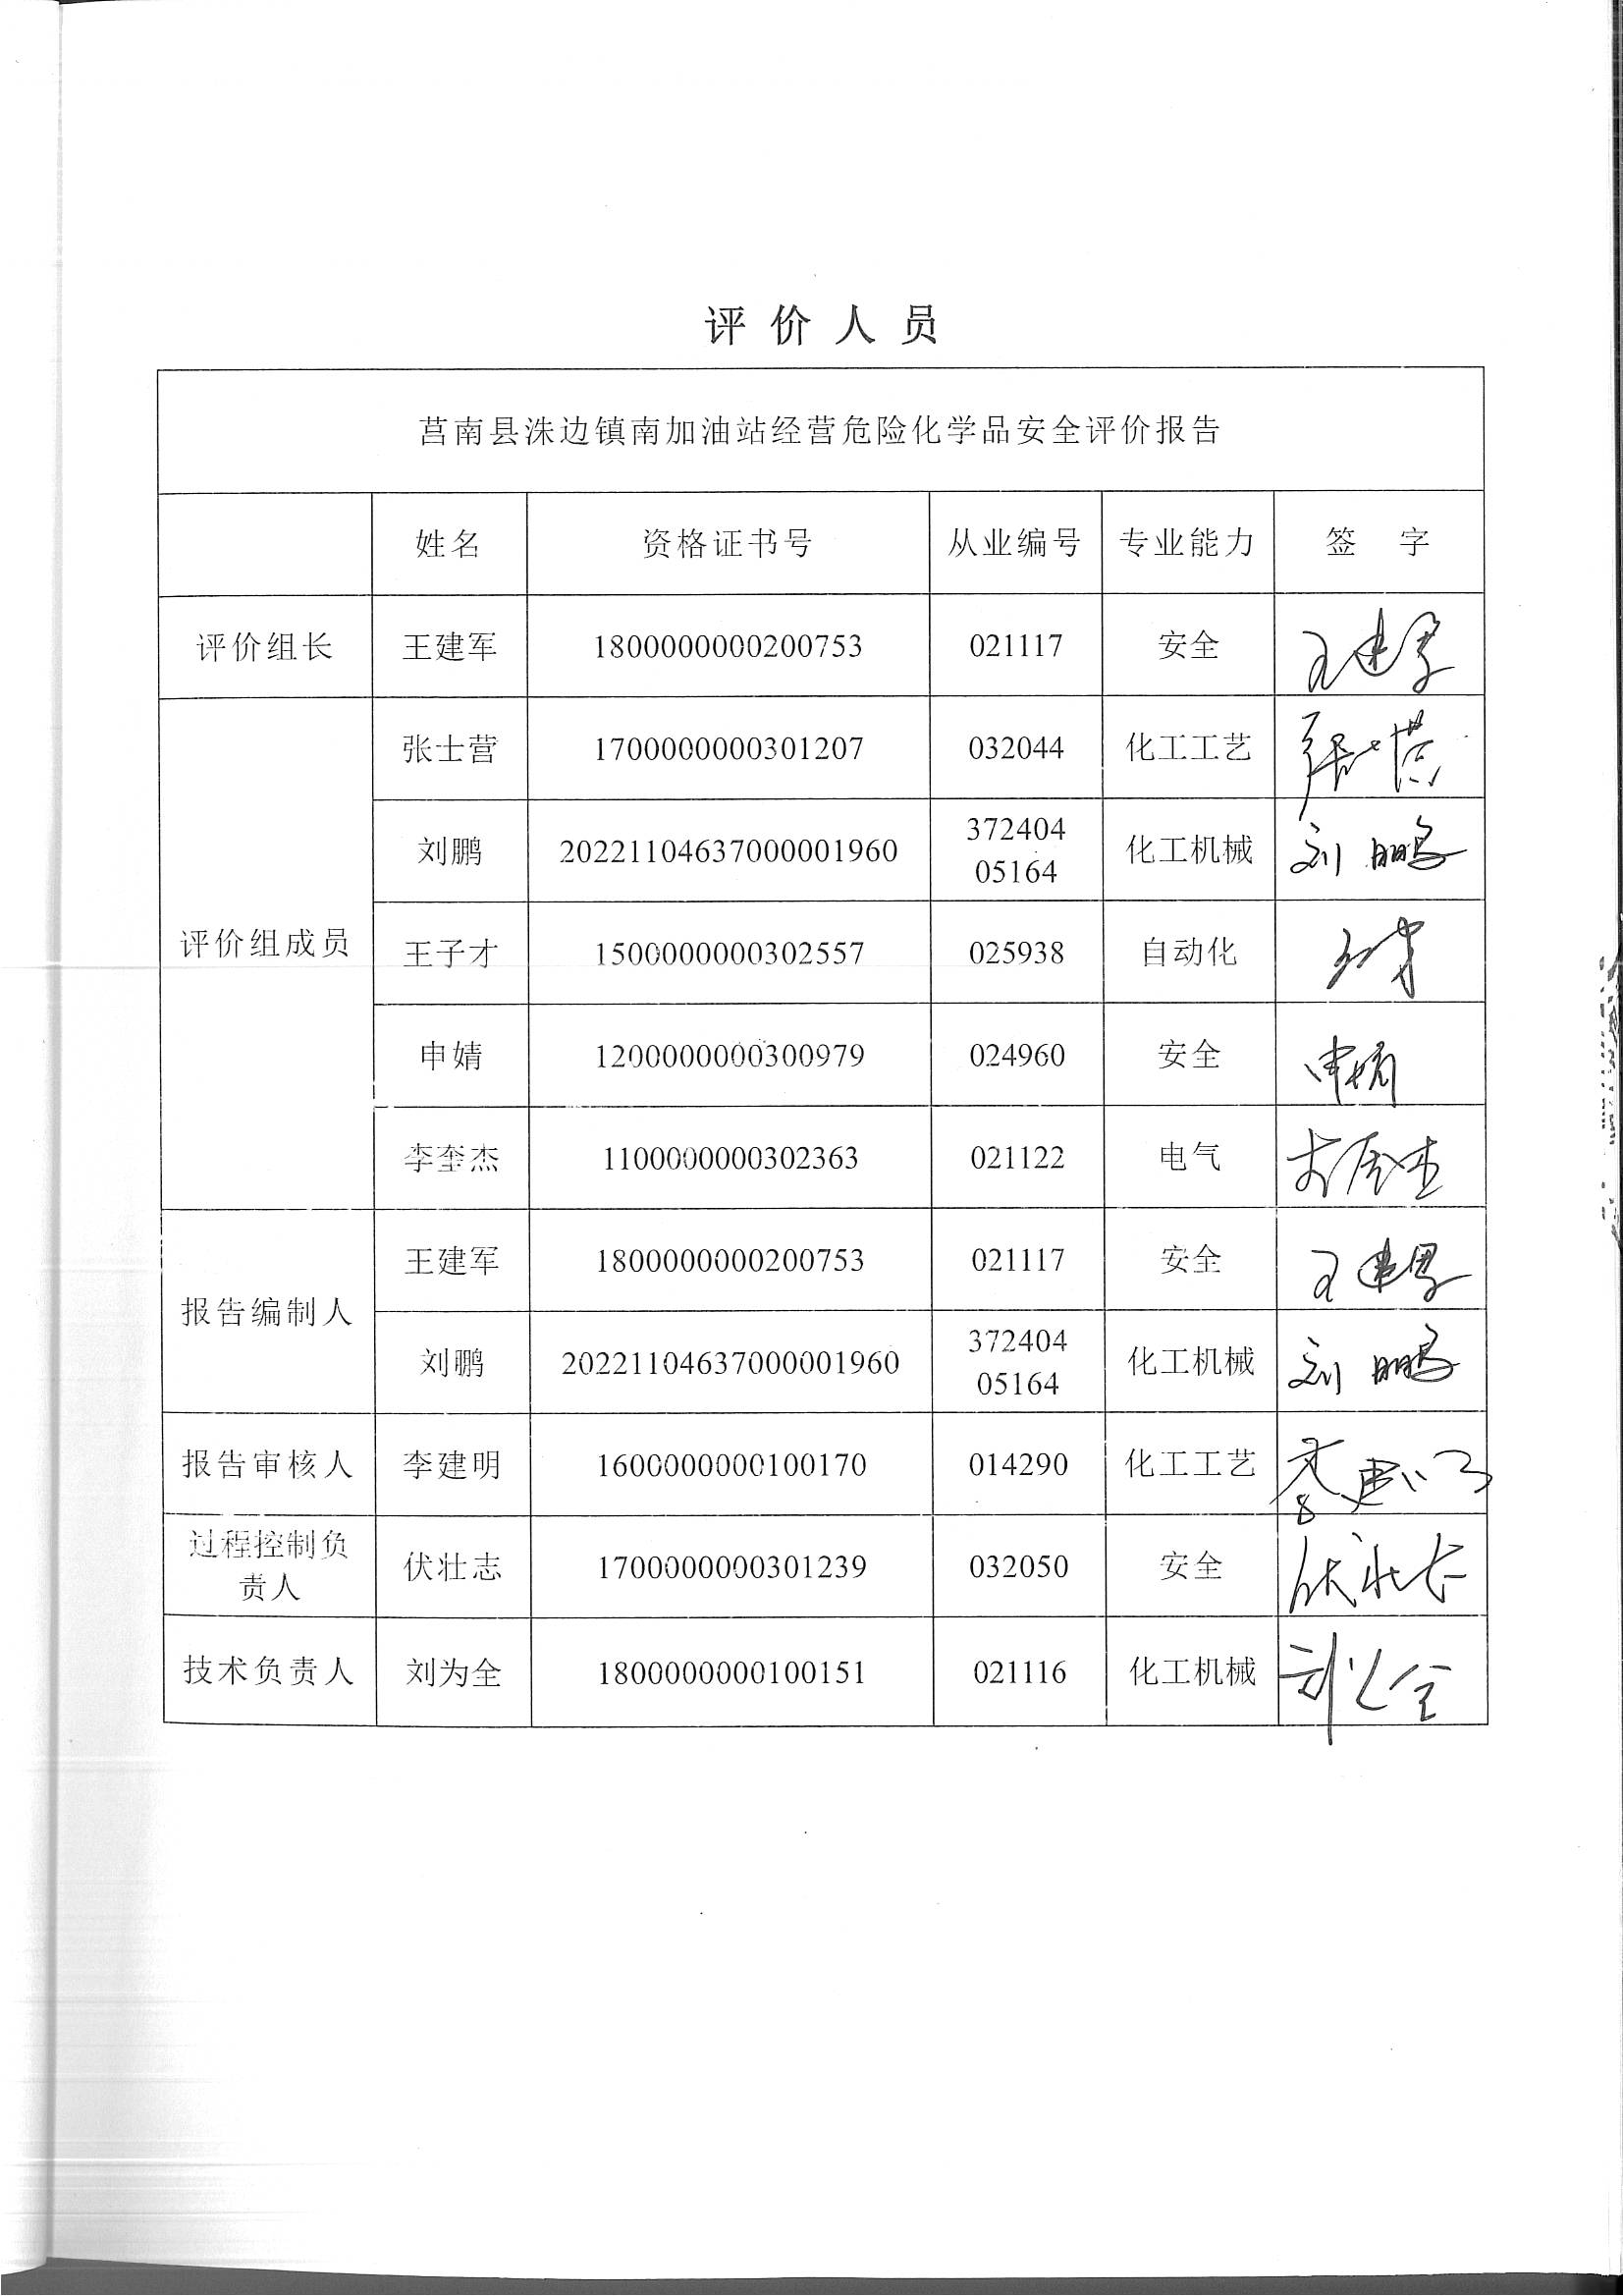 评价人员
莒南县洙边镇南加油站经营危险化学品安全评价报告
姓名 资格证书号 从业编号 专业能力 签 字
评价组长 王建军 1800000000200753 021117 安全 王建军
张士营 1700000000301207 032044 化工工艺 张士营
刘鹏 20221104637000001960 372404 05164 化工机械 刘鹏
评价组成员 王子才 1500000000302557 025938 自动化 王子才
申婧 1200000000300979 024960 安全 申婧
李奎杰 1100000000302363 021122 电气 李奎杰
王建军 1800000000200753 021117 安全 王建军
报告编制人
刘鹏 20221104637000001960 372404 05164 化工机械 刘鹏
报告审核人 李建明 1600000000100170 014290 化工工艺 李建明
过程控制负责人 伏壮志 1700000000301239 032050 安全 伏壮志
技术负责人 刘为全 1800000000100151 021116 化工机械 刘为全